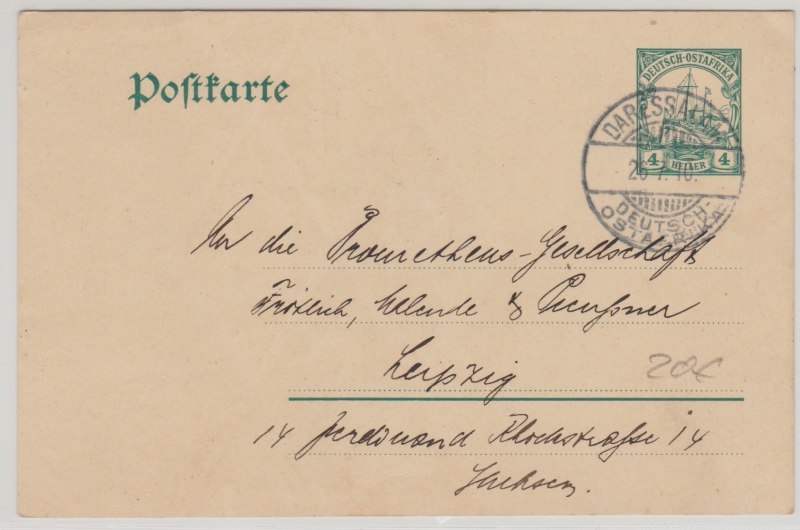 Postkarte
DEUTSCH-OSTAFRIKA
4 HELLER 4
DARESSALAM
26 7. 10.
DEUTSCH-
OSTAFRIKA
An die Prometheus-Gesellschaft
Frölich, & Preußner
Leipzig
20€
14 Ferdinand Rhodestrasse 14
Sachsen.